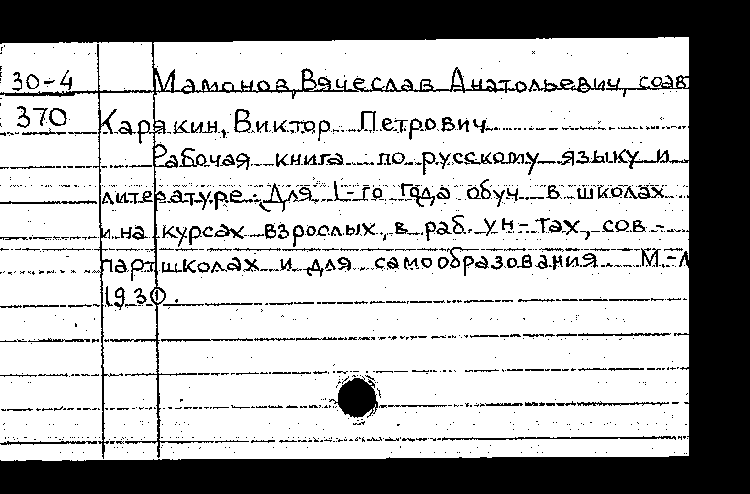 30-4
370
Мамонов, Вячеслав Анатольевич, соав
Карякин, Виктор Петрович
Рабочая книга по русскому языку и
литературе. Для 1-го года обуч. в школах
и на курсах взрослых, в раб. ун-тах, сов-
партшколах и для самообразования. М.-Л
1930.